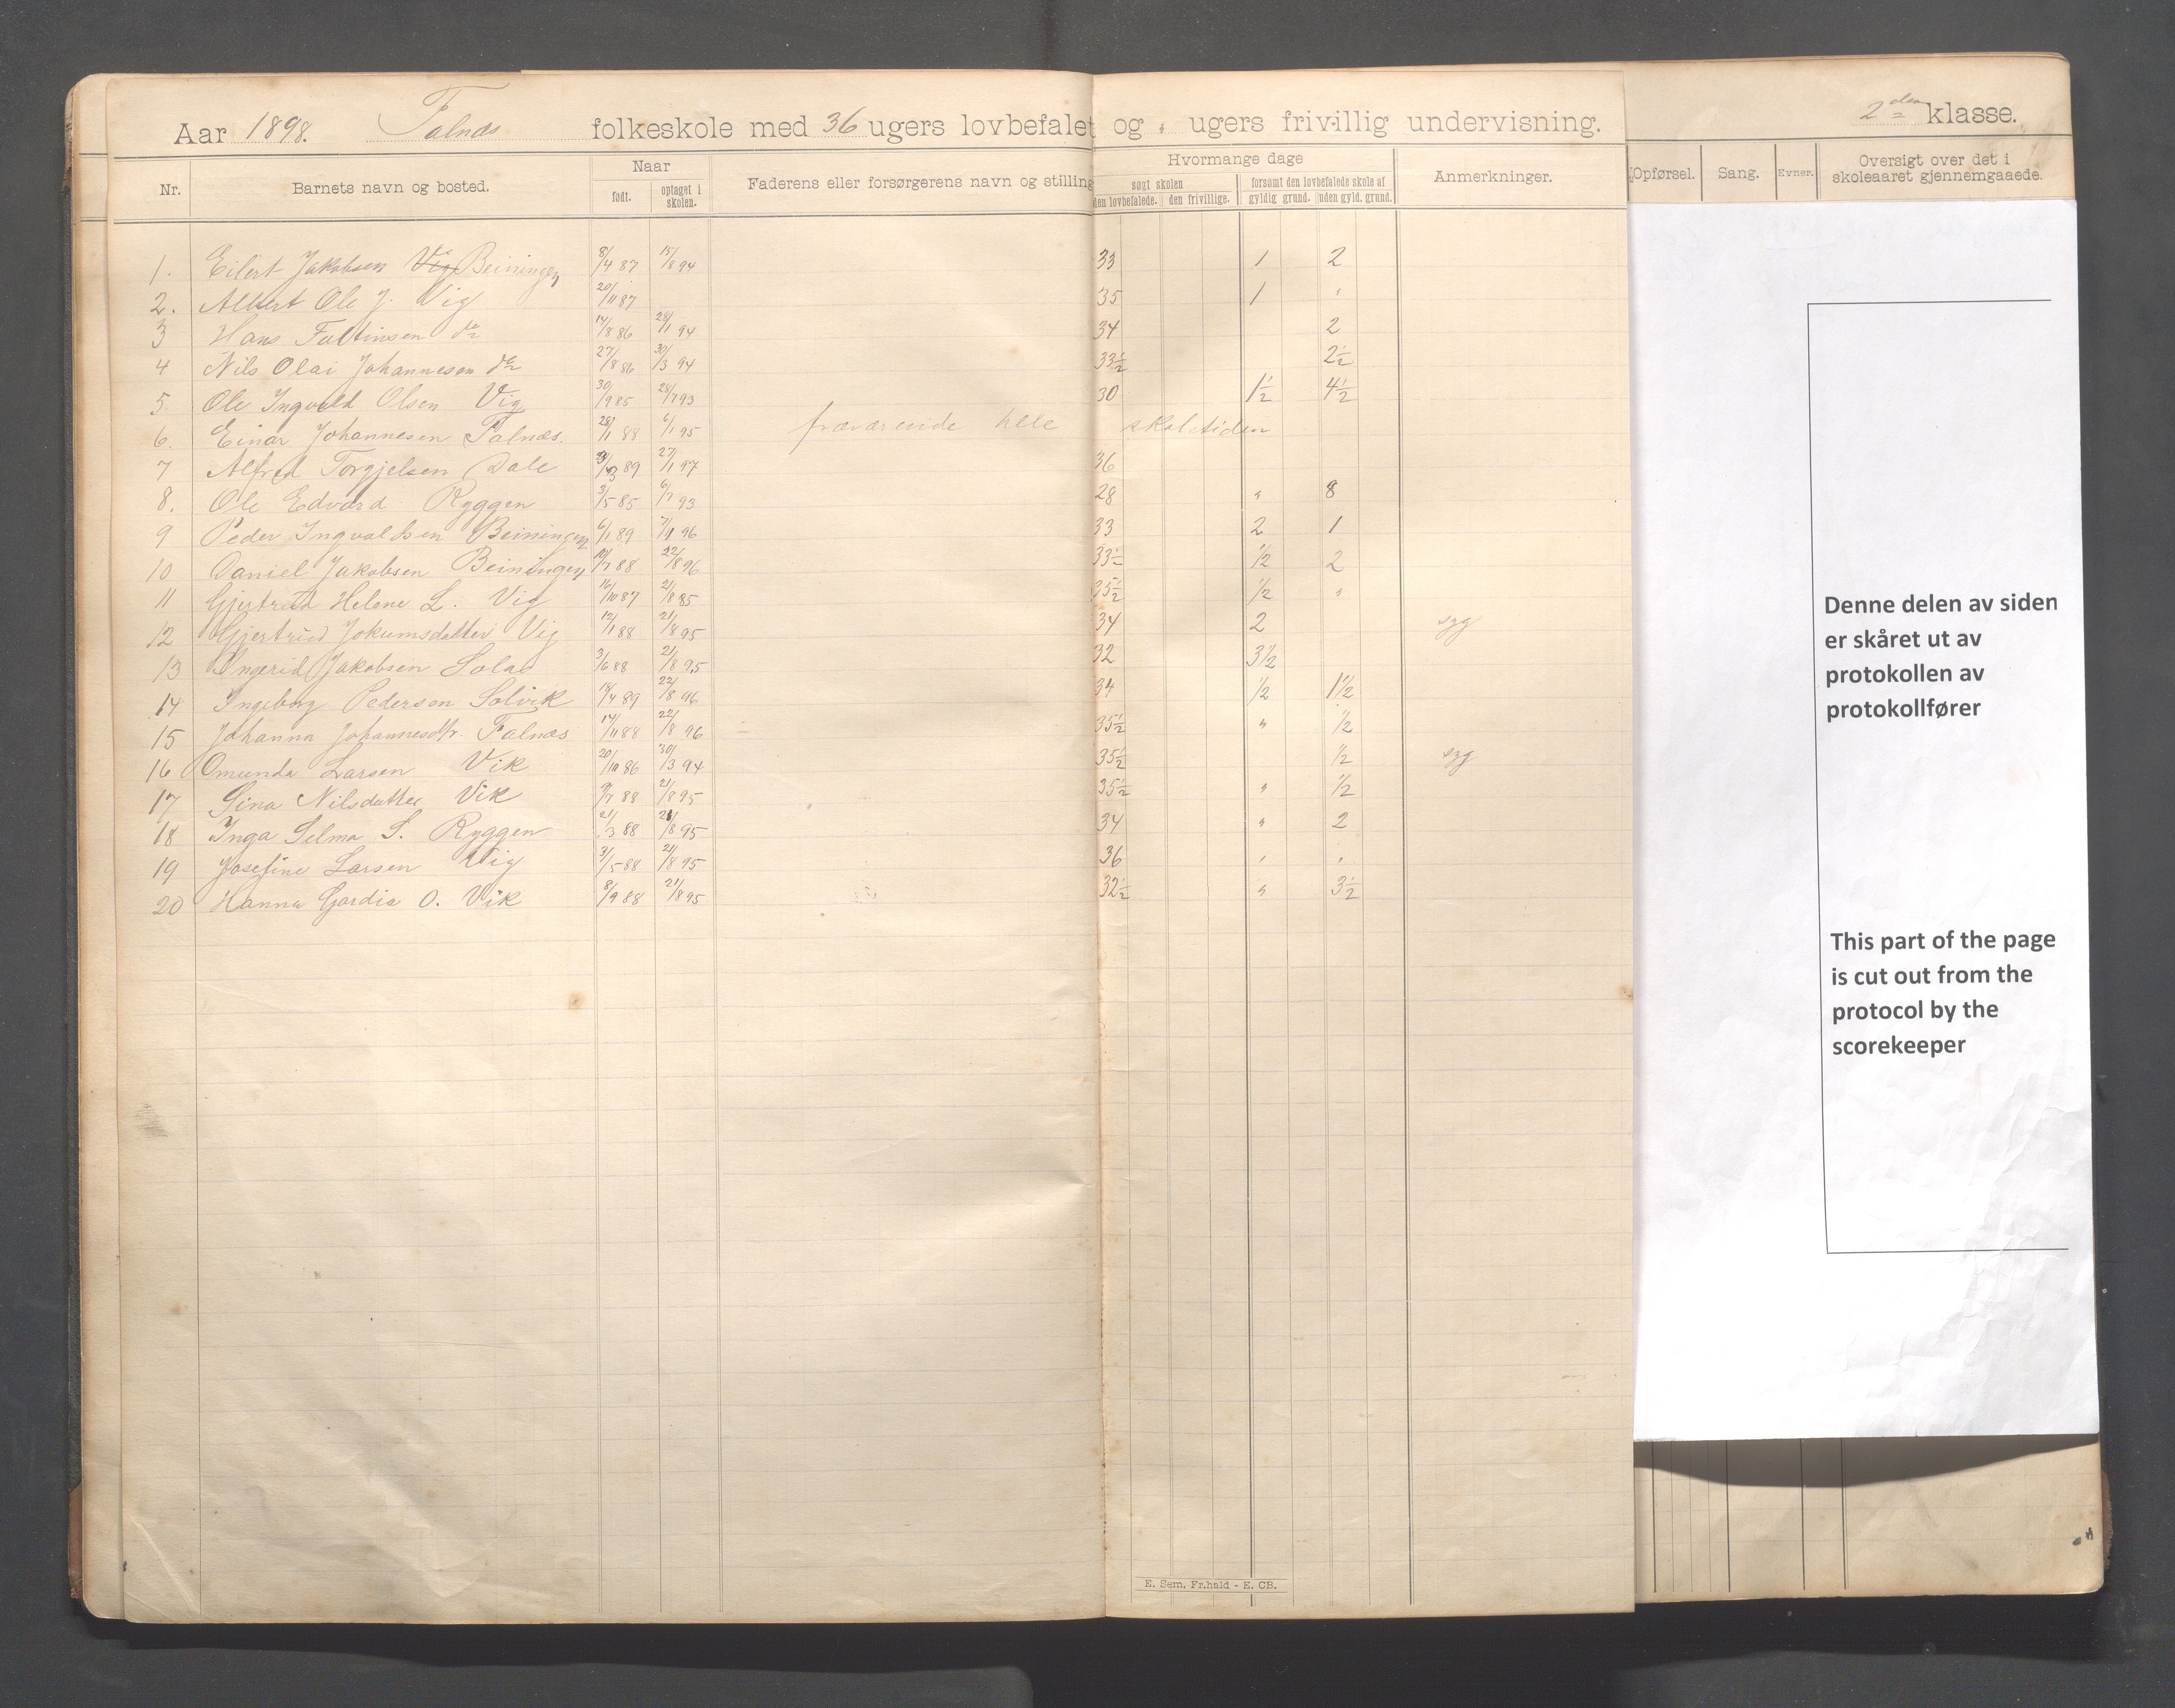 Aar 1898. Falnæs folkeskole med 36 ugers lovbefalet og „ ugers frivillig undervisning. 2den klasse.
Nr. Barnets navn og bosted. Naar født. optaget i skolen. Faderens eller forsørgerens navn og stilling Hvormange dage søgt skolen den lovbefalede. den frivillige. forsømt den lovbefalede skole af gyldig grund. uden gyld. grund. Anmerkninger. Opførsel. Sang. Evner. Oversigt over det i skoleaaret gjennemgaaede.
1. Eilert Jakobsen Vig Beiningen 8/4 87 15/8 94 33 1 2
2. Albert Ole J. Vig 20/11 87 35 1 „
3 Hans Faltinsen do 14/8 86 29/1 94 34 2
4 Nils Olai Johannesen do 27/8 86 30/3 94 33½ 2½
5. Ole Ingvald Olsen Vig 30/9 85 28/7 93 30 1½ 4½
6. Einar Johannesen Falnæs. 28/1 88 6/1 95 fraværende hele skoletiden
7 Alfred Torgjelsen Dale 89 27/1 97 36
8. Ole Edvard Ryggen 3/5 85 6/7 93 28 „ 8
9 Peder Ingvaldsen Beiningen 6/1 89 7/1 96 33 2 1
10 Daniel Jakobsen Beiningen 19/7 88 22/8 96 33½ ½ 2
11 Gjertrud Helene L. Vig 16/10 87 21/8 85 35½ ½ „
12 Gjertrud Jokumsdatter Vig 12/1 88 21/8 95 34 2 syg
13 Ingerid Jakobsen Sola 3/6 88 21/8 95 32 3½
14 Ingeborg Pedersen Solvik 18/4 89 22/8 96 34 ½ 1½
15 Johanna Johannesdtr. Falnæs 14/11 88 22/8 96 35½ „ ½
16 Omunda Larsen Vik 20/10 86 30/3 94 35½ ½ syg
17 Sina Nilsdatter Vik 9/7 88 21/8 95 35½ „ ½
18 Inga Selma S. Ryggen 21/3 88 21/8 95 34 „ 2
19 Josefine Larsen Vig 31/5 88 21/8 95 36 „ „
20 Hanna Gardia O. Vik 8/9 88 21/8 95 32½ „ 3½
E. Sem, Fr.hald - E. CB.
Denne delen av siden
er skåret ut av
protokollen av
protokollfører
This part of the page
is cut out from the
protocol by the
scorekeeper